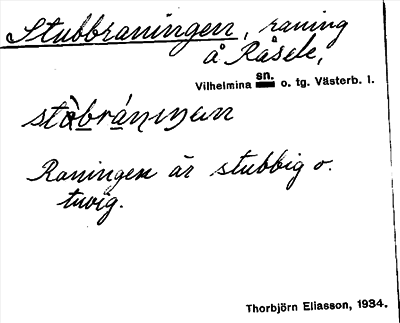 Stubbraningen, raning
å Råsele,
Vilhelmina sn. o. tg. Västerb. l.
stòbrániŋan
Raningen är stubbig o.
tuvig.
Thorbjörn Eliasson, 1934.